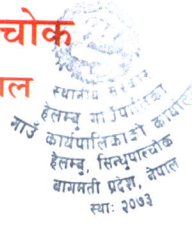 चोक
ल
स्थानीय सरकार
हेलम्बु गाउँपालिका
गाउँ कार्यपालिकाको कार्यालय
हेलम्बु, सिन्धुपाल्चोक
बागमती प्रदेश, नेपाल
स्था: २०७३